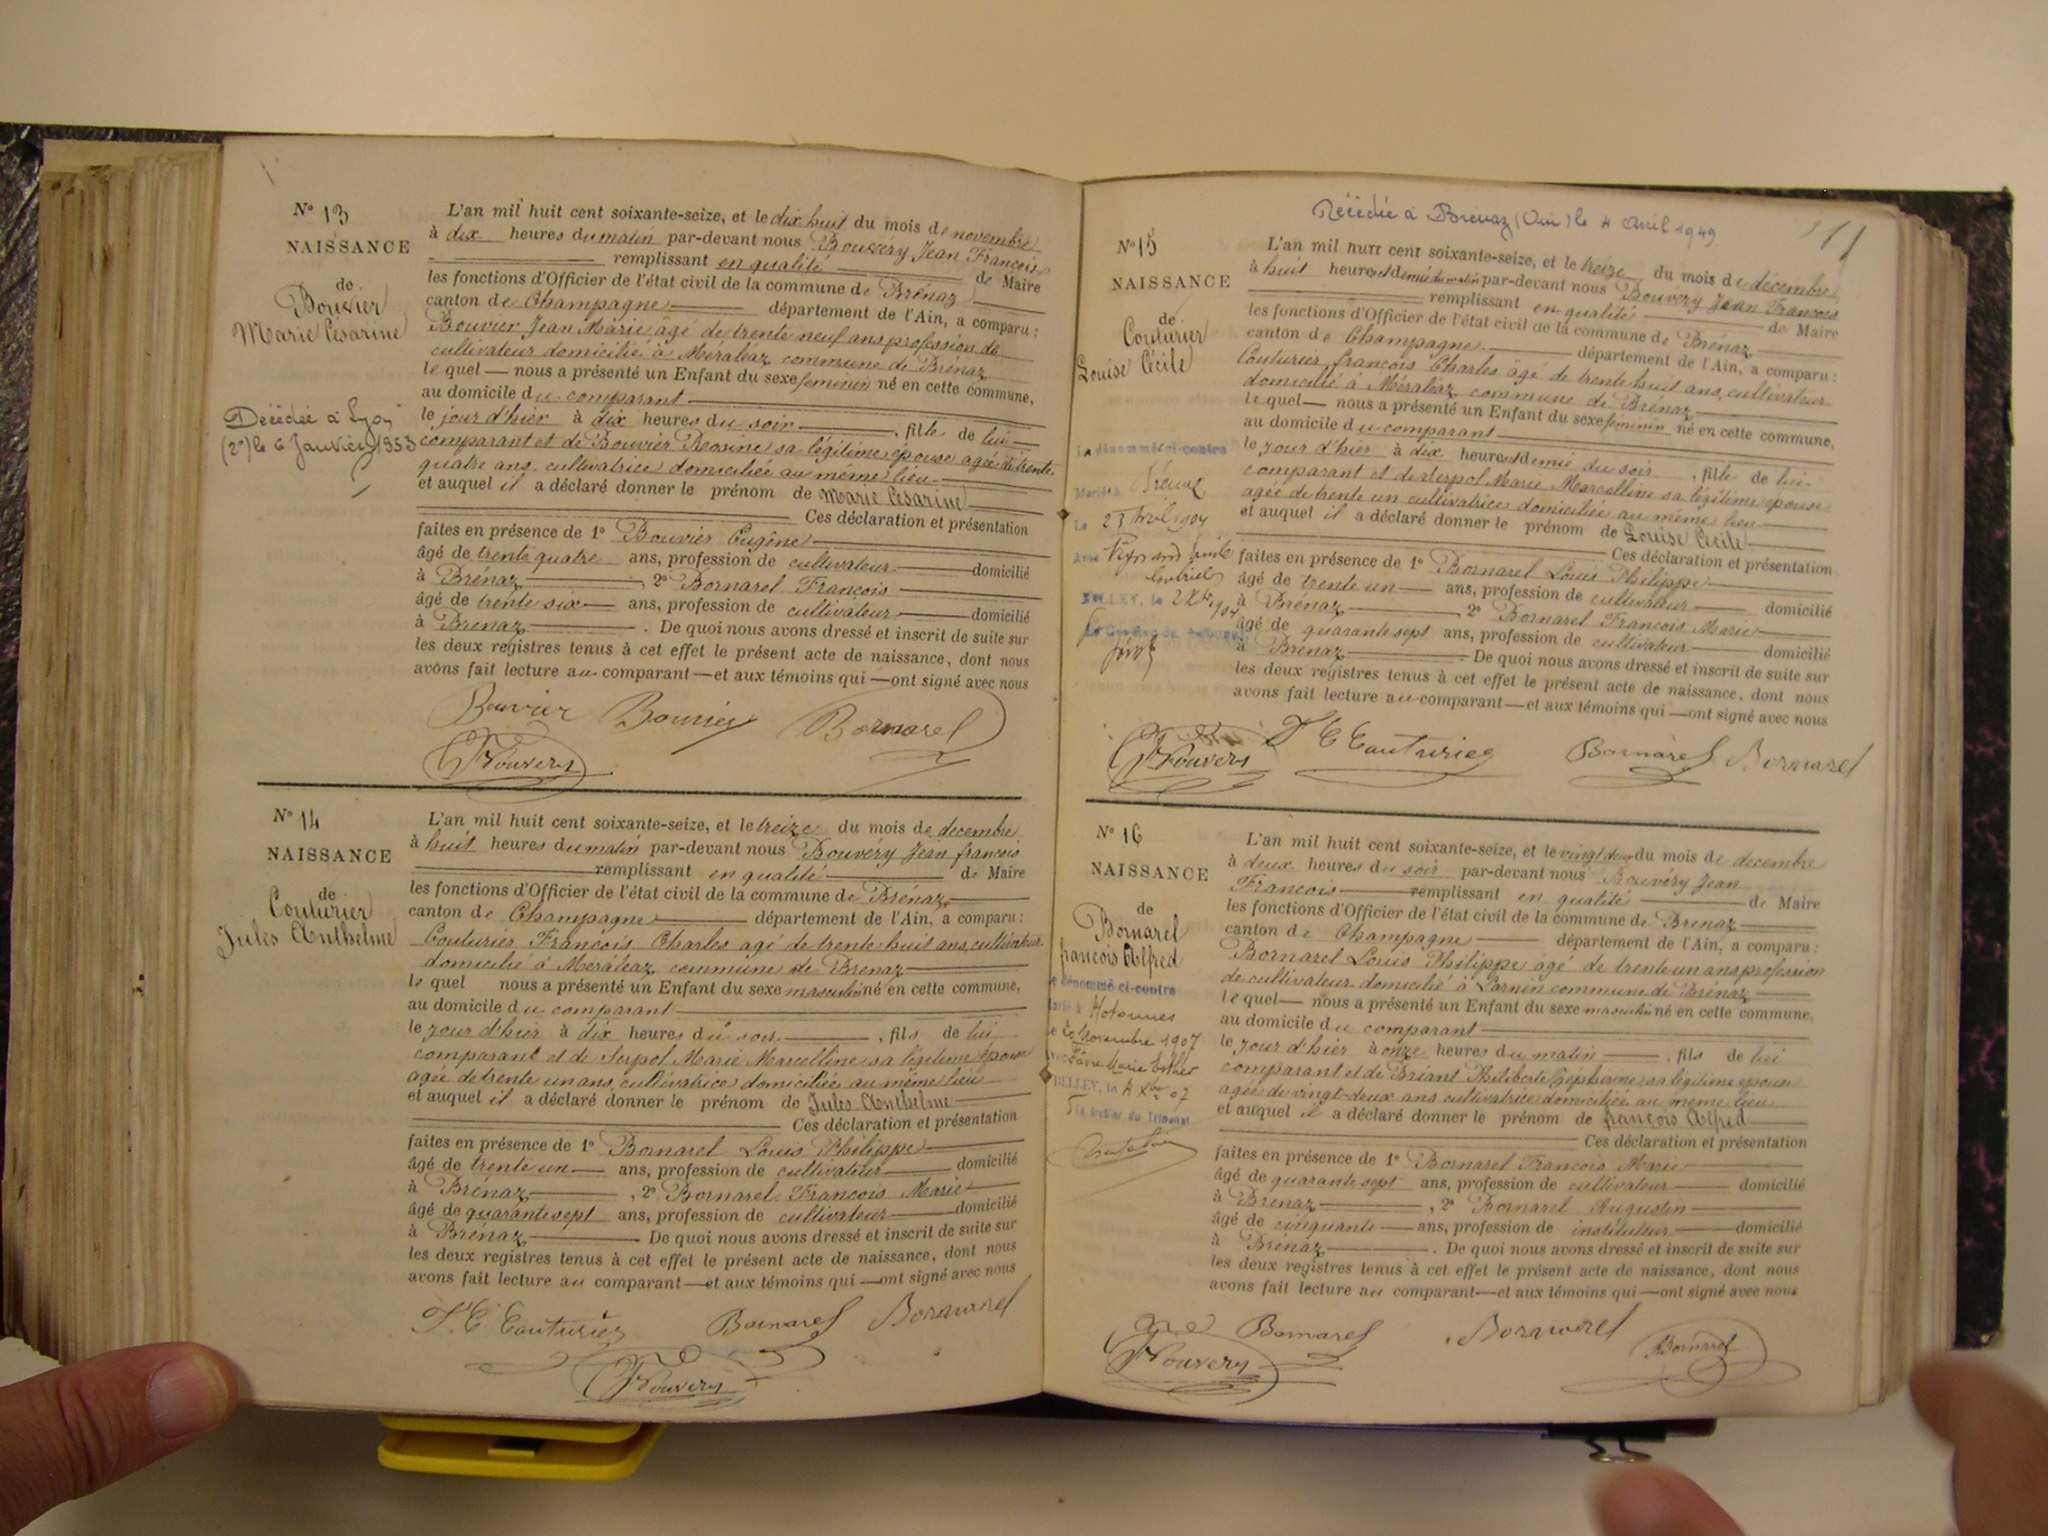 Nº 13
NAISSANCE
de
Bouvier
Marie Césarine
Décédée à Lyon
(2e) le 6 Janvier 1953
L'an mil huit cent soixante-seize, et le dix huit du mois de novembre
à dix heures du matin par-devant nous Bouvéry Jean François
remplissant en qualité de Maire
les fonctions d'Officier de l'état civil de la commune de Brénaz
canton de Champagne département de l'Ain, a comparu :
Bouvier Jean Marie âgé de trente neuf ans profession de
cultivateur domicilié à Méraléaz commune de Brénaz
le quel — nous a présenté un Enfant du sexe feminin né en cette commune,
au domicile du comparant
le jour d'hier à dix heures du soir , fille de lui
comparant et de Bouvier Rosine sa légitime épouse agée de trente
quatre ans cultivatrice domiciliée au même lieu
et auquel il a déclaré donner le prénom de Marie Césarine
Ces déclaration et présentation
faites en présence de 1º Bouvier Eugène
âgé de trente quatre ans, profession de cultivateur domicilié
à Brénaz , 2º Bornarel François
âgé de trente six ans, profession de cultivateur domicilié
à Brénaz . De quoi nous avons dressé et inscrit de suite sur
les deux registres tenus à cet effet le présent acte de naissance, dont nous
avons fait lecture au comparant — et aux témoins qui — ont signé avec nous
Bouvier Bouvier Bornarel
Bouvery
Nº 14
NAISSANCE
de
Couturier
Jules Anthelme
L'an mil huit cent soixante-seize, et le treize du mois de decembre
à huit heures du matin par-devant nous Bouvéry Jean françois
remplissant en qualité de Maire
les fonctions d'Officier de l'état civil de la commune de Brénaz
canton de Champagne département de l'Ain, a comparu :
Couturier François Charles agé de trente huit ans, cultivateur
domicilié à Méraléaz commune de Brenaz
le quel nous a présenté un Enfant du sexe masculin né en cette commune,
au domicile du comparant
le jour d'hier à dix heures du soir , fils de lui
comparant et de Serpol Marie Marcelline sa légitime épouse
agée de trente un ans, cultivatrice domiciliée au même lieu
et auquel il a déclaré donner le prénom de Jules Anthelme
Ces déclaration et présentation
faites en présence de 1º Bornarel Louis Philippe
âgé de trente un ans, profession de cultivateur domicilié
à Brénaz , 2º Bornarel François Marie
âgé de quarante sept ans, profession de cultivateur domicilié
à Brénaz . De quoi nous avons dressé et inscrit de suite sur
les deux registres tenus à cet effet le présent acte de naissance, dont nous
avons fait lecture au comparant — et aux témoins qui — ont signé avec nous
F. C. Couturier Bornarel Bornarel
Bouvery
Décédée à Brénaz (Ain) le 4 Avril 1949
Nº 15
NAISSANCE
de
Couturier
Louise Cécile
La dénommée ci-contre
Mariée à
Le 23 Avril 1904
Avec
Gabriel
BELLEY, le
L'an mil huit cent soixante-seize, et le treize du mois de décembre
à huit heures et demie du matin par-devant nous Bouvéry Jean François
remplissant en qualité de Maire
les fonctions d'Officier de l'état civil de la commune de Brénaz
canton de Champagne département de l'Ain, a comparu :
Couturier françois Charles âgé de trente huit ans, cultivateur
domicilié à Méraléaz commune de Brénaz
le quel — nous a présenté un Enfant du sexe feminin né en cette commune,
au domicile du comparant
le jour d'hier à dix heures et demie du soir , fille de lui
comparant et de Serpol Marie Marcelline sa légitime épouse
agée de trente un cultivatrice domiciliée au même lieu
et auquel il a déclaré donner le prénom de Louise Cécile
Ces déclaration et présentation
faites en présence de 1º Bornarel Louis Philippe
âgé de trente un ans, profession de cultivateur domicilié
à Brénaz 2º Bornarel François Marie
âgé de quarante sept ans, profession de cultivateur domicilié
à Brénaz . De quoi nous avons dressé et inscrit de suite sur
les deux registres tenus à cet effet le présent acte de naissance, dont nous
avons fait lecture au comparant — et aux témoins qui — ont signé avec nous
Bouvery F C Couturier Bornarel Bornarel
Nº 16
NAISSANCE
de
Bornarel
françois Alfred
Le dénommé ci-contre
Marié à Hotonnes
Novembre 1907
Favre Marie Esther
BELLEY, le 4 Xbre 07
Le Greffier du Tribunal
L'an mil huit cent soixante-seize, et le vingt deux du mois de decembre
à deux heures du soir par-devant nous Bouvéry Jean
François remplissant en qualité de Maire
les fonctions d'Officier de l'état civil de la commune de Brenaz
canton de Champagne département de l'Ain, a comparu :
Bornarel Louis Philippe âgé de trente un ans profession
de cultivateur domicilié à Larnin commune de Brénaz
le quel — nous a présenté un Enfant du sexe masculin né en cette commune,
au domicile du comparant
le jour d'hier à onze heures du matin , fils de lui
comparant et de Briant Philiberte Joséphine sa légitime épouse
agée de vingt-deux ans cultivatrice domiciliée au même lieu
et auquel il a déclaré donner le prénom de françois Alfred
Ces déclaration et présentation
faites en présence de 1º Bornarel François Marie
âgé de quarante sept ans, profession de cultivateur domicilié
à Brénaz , 2º Bornarel Augustin
âgé de cinquante ans, profession de instituteur domicilié
à Brénaz . De quoi nous avons dressé et inscrit de suite sur
les deux registres tenus à cet effet le présent acte de naissance, dont nous
avons fait lecture au comparant — et aux témoins qui — ont signé avec nous
Bouvery Bornarel Bornarel Bornarel